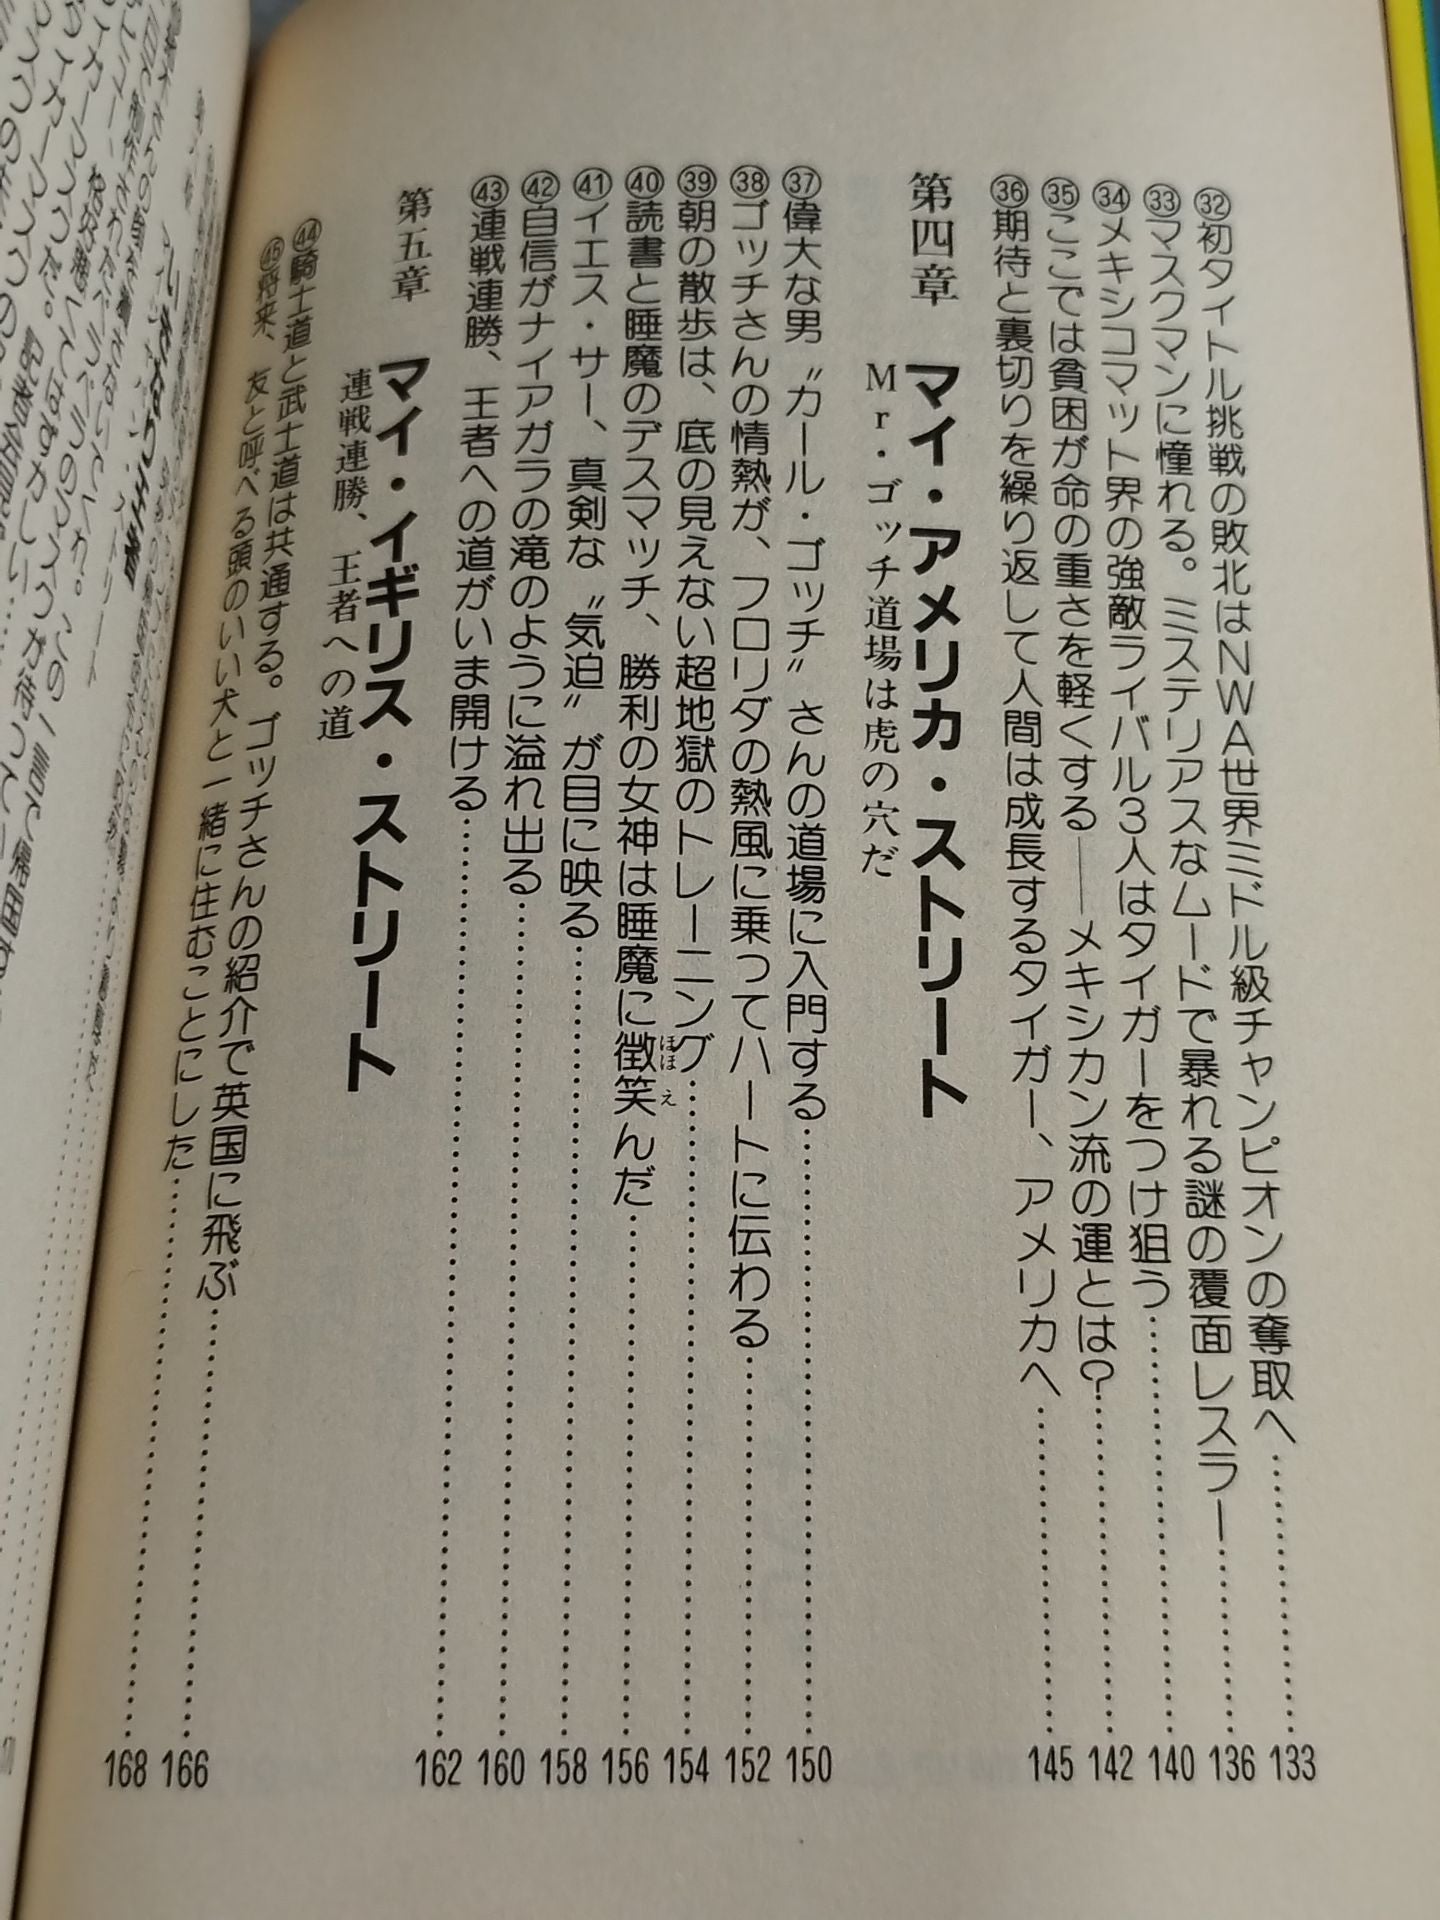 ㉜初タイトル挑戦の敗北はNWA世界ミドル級チャンピオンの奪取へ……133
㉝マスクマンに憧れる。ミステリアスなムードで暴れる謎の覆面レスラー……136
㉞メキシコマット界の強敵ライバル3人はタイガーをつけ狙う……140
㉟ここでは貧困が命の重さを軽くする――メキシカン流の運とは?……142
㊱期待と裏切りを繰り返して人間は成長するタイガー、アメリカへ……145
第四章 マイ・アメリカ・ストリート
Mr・ゴッチ道場は虎の穴だ
㊲偉大な男〝カール・ゴッチ〟さんの道場に入門する……150
㊳ゴッチさんの情熱が、フロリダの熱風に乗ってハートに伝わる……152
㊴朝の散歩は、底の見えない超地獄のトレーニング……154
㊵読書と睡魔のデスマッチ、勝利の女神は睡魔に微笑んだ……156
ほほえ
㊶イエス・サー、真剣な〝気迫〟が目に映る……158
㊷自信がナイアガラの滝のように溢れ出る……160
㊸連戦連勝、王者への道がいま開ける……162
第五章 マイ・イギリス・ストリート
連戦連勝、王者への道
㊹騎士道と武士道は共通する。ゴッチさんの紹介で英国に飛ぶ……166
㊺将来、友と呼べる頭のいい犬と一緒に住むことにした……168